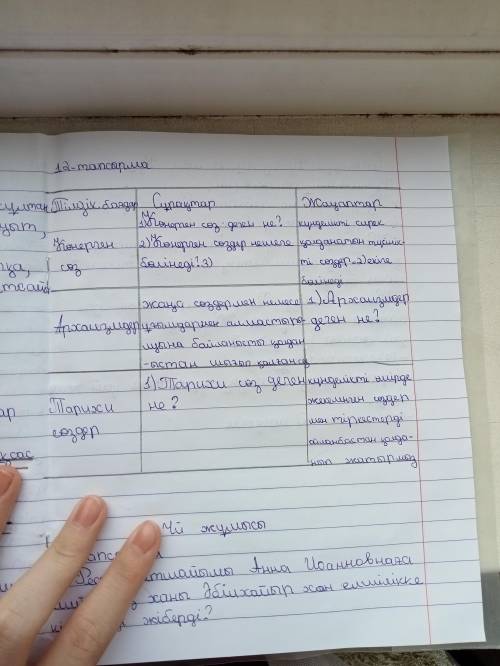 12-тапсырма
Тілдік бағдар Сұрақтар Жауаптар
Көнерген
сөз
1) Көнерген сөз деген не?
2) Көнерген сөздер нешеге
бөлінеді? 3)
күнделікті сирек
қолданатын тіркес-
ті сөздер. 2) екіге
бөлінеді
Архаизмдер
жаңа сөздермен немесе
ұғымдармен алмастыры-
луына байланысты қолдан-
-ыстан шығып қалған сөз
1) Архаизмдер
деген не?
Тарихи
сөздер
1) Тарихи сөз деген
не?
күнделікті өмірде
жекеленген сөздер
мен тіркестерді
ойланбастан қолда-
нып жатырмыз
сұлтан
ар
ұқсас
Үй жұмысы
патшайымы Анна Иоанновнаға
ханы Әбілхайыр хан елшілікке
жіберді?